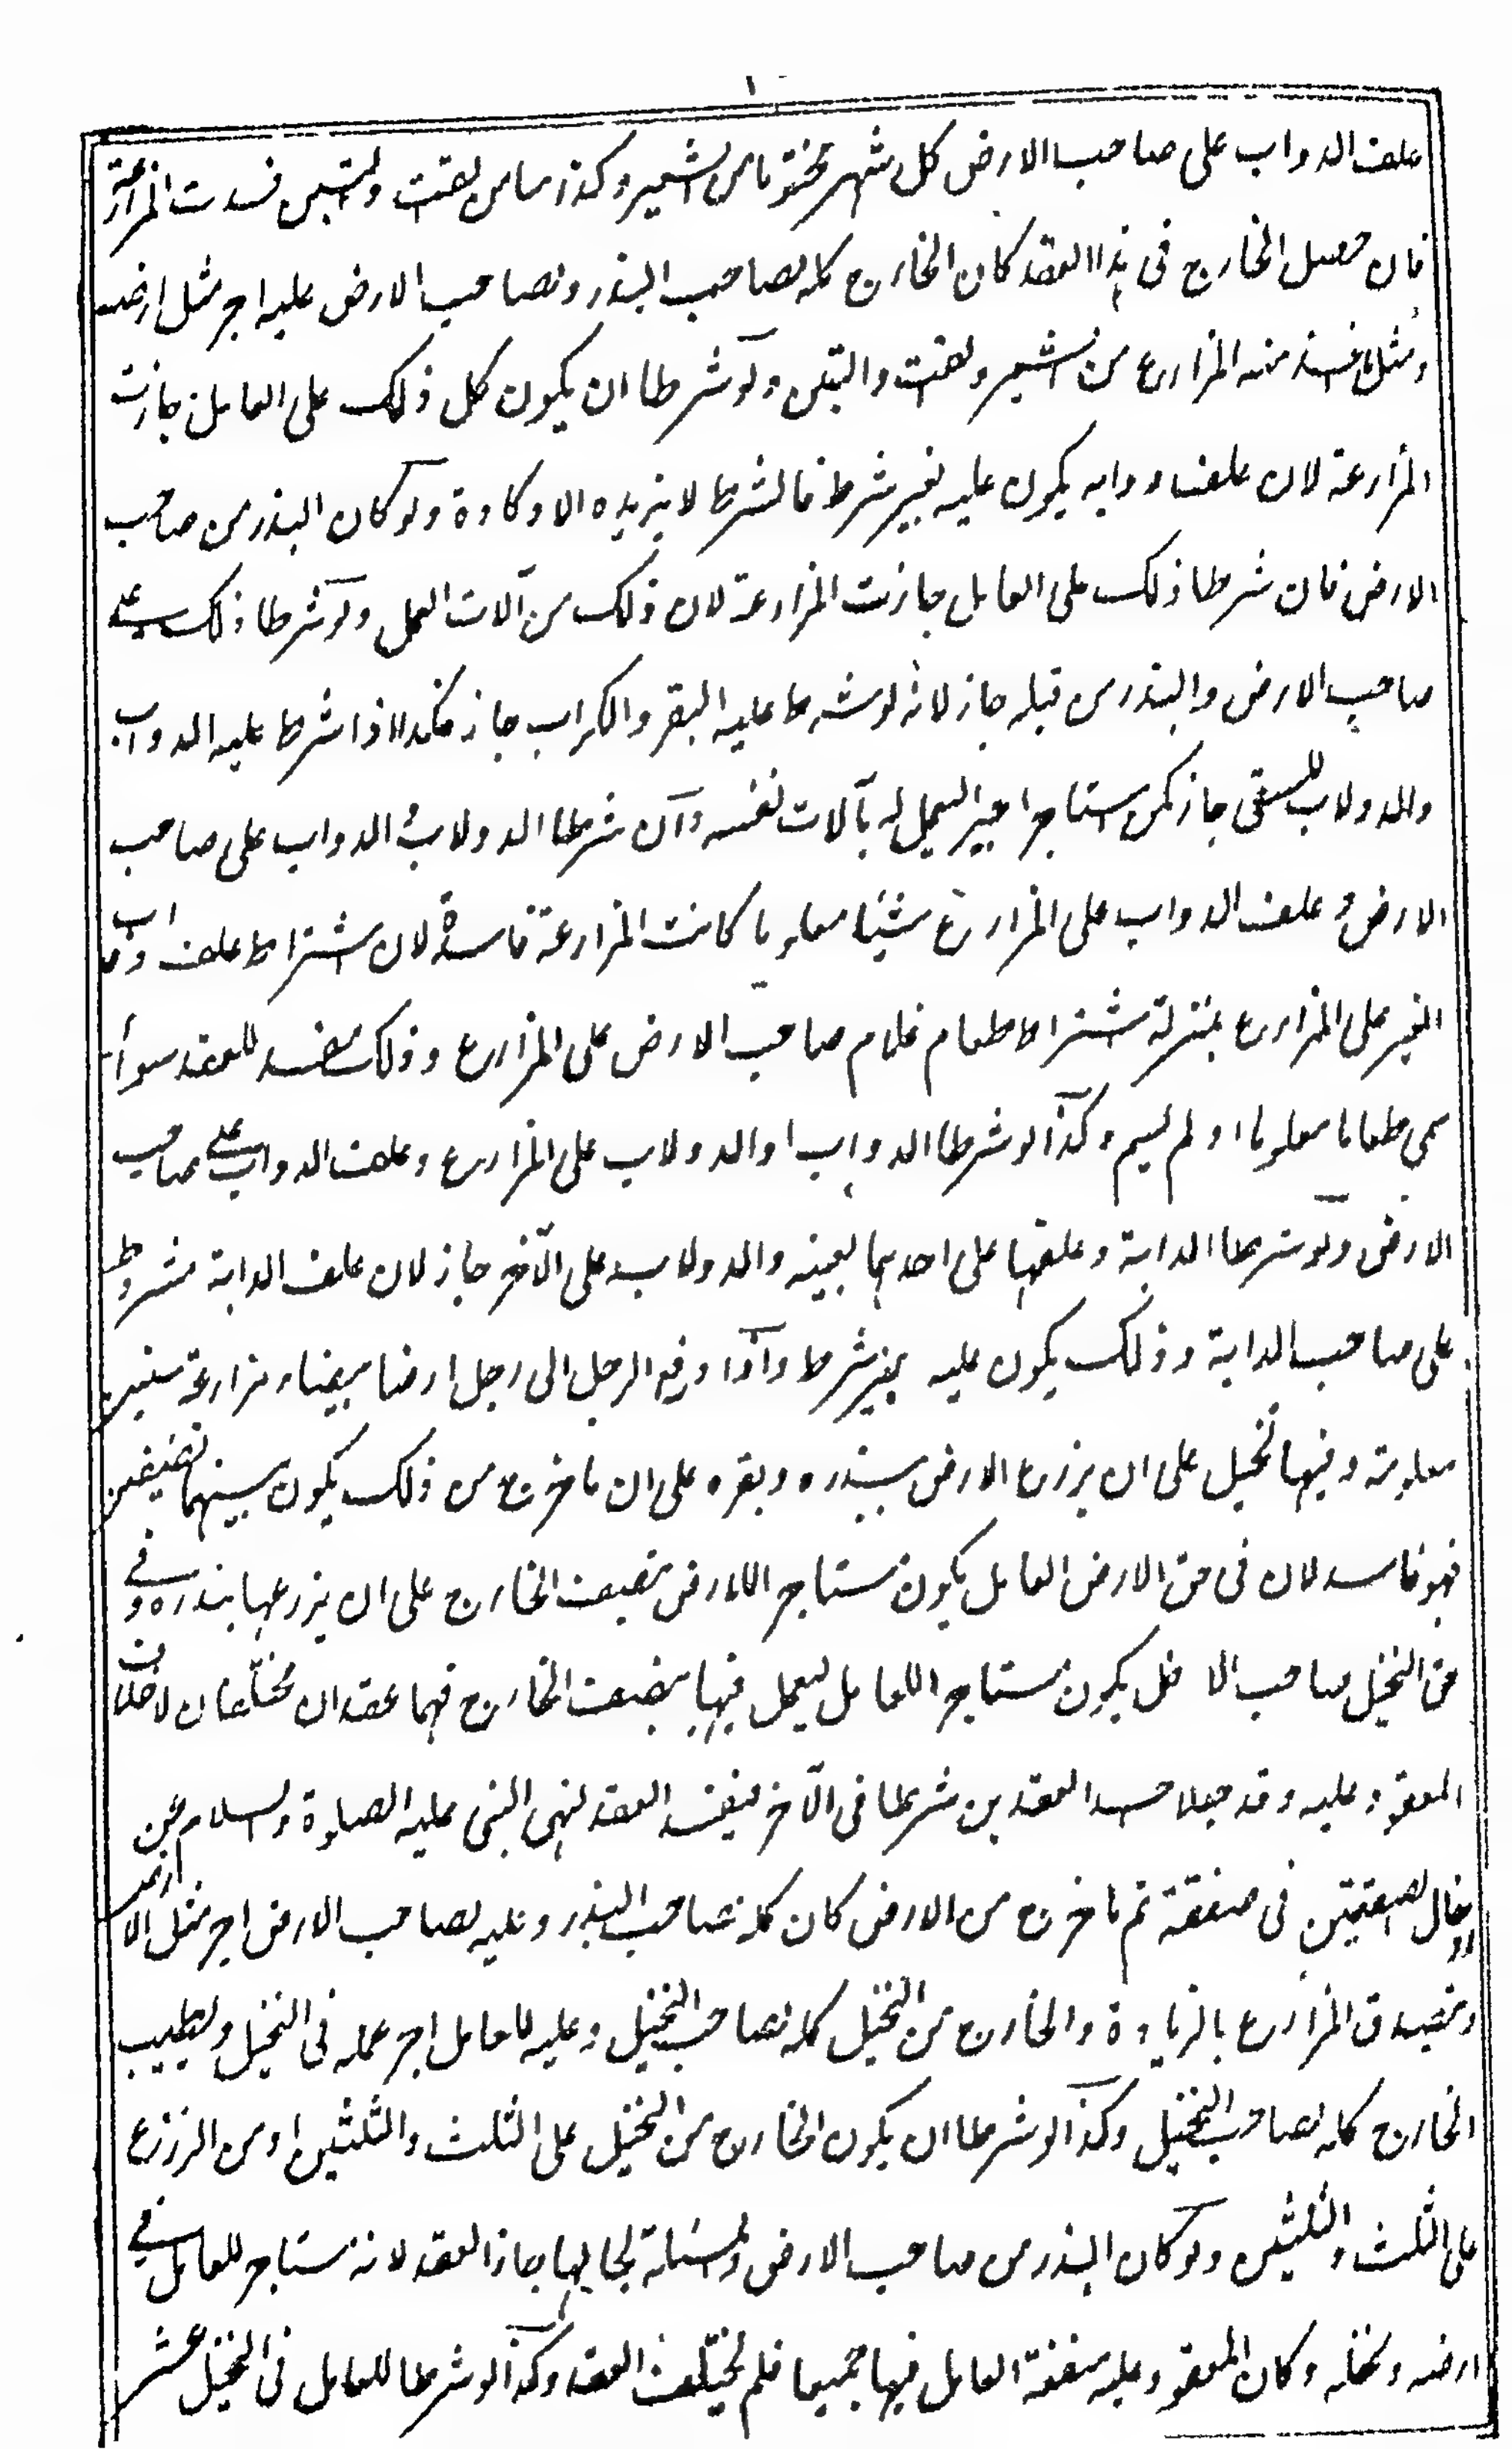 علف الدواب على صاحب الارض كل شهر مختوما من الشعير وكذا سا من القت والتبن فسدت المزارعة
فان حصل الخارج فى هذا العقد كان الخارج كله لصاحب البذر ولصاحب الارض عليه اجر مثل ارضه
ومثل ما اخذ منه المزارع من الشعير والقت والتبن ولو شرطا ان يكون كل ذلك على العامل جازت
المزارعة لان علف دوابه يكون عليه بغير شرط فالشرط لا يزيده الا وكادة ولو كان البذر من صاحب
الارض فان شرطا ذلك على العامل جازت المزارعة لان ذلك من آلات العمل ولو شرطا ذلك على
صاحب الارض والبذر من قبله جاز لانه لو شرط عليه البقر والكراب جاز فكذلا اذا شرط عليه الدواب
والدولاب للسقى جاز كمن استاجر اجير اليعمل له بآلات نفسه وان شرطا الدولاب و الدواب على صاحب
الارض و علف الدواب على المزارع شيئا معلوما كانت المزارعة فاسدة لان اشتراط علف دواب
الغير على المزارع بمنزلة اشتراط طعام غلام صاحب الارض على المزارع وذلك مفسد للعقد سوأ
سمى طعاما معلوما او لم يسم وكذا لو شرطا الدواب او الدولاب على المزارع وعلف الدواب على صاحب
الارض ولو شرطا الدابة وعلفها على احدهما بعينه والدولاب على الآخر جاز لان علف الدابة مشروط
على صاحب الدابة وذلك يكون عليه بغير شرط واذا دفع الرجل الى رجل ارضا بيضاء مزارعة سنين
معلومة وفيها نخيل على ان يزرع الارض ببذره وبقره على ان ما خرج من ذلك يكون بينهما نصفين
فهو فاسد لان فى حق الارض العامل يكون مستاجر اللارض بنصف الخارج على ان يزرعها ببذره وفى
حق النخيل صاحب الا ضل يكون مستاجر اللعامل ليعمل فيها بنصف الخارج فهما عقدان مختلفان لاختلاف
المعقود عليه وقد جعلا احد العقدين شرطا فى الآخر فيفسد العقد لنهى النبى عليه الصلوة والسلام عن
ادخال الصفقتين فى صفقة ثم ما خرج من الارض كان كله لصاحب البذر وعليه لصاحب الارض اجر مثل الارض
ويتصدق المزارع بالزيادة والخارج من النخيل كله لصاحب النخيل وعليه للعامل اجر عمله فى النخيل ويطيب
الخارج كله لصاحب النخيل وكذا لو شرطا ان يكون الخارج من النخيل على الثلث والثلثين او من الزرع
على الثلث والثلثين ولو كان البذر من صاحب الارض والمسئلة بحالها جاز العقد لانه استاجر للعامل فى
ارضه ونخله وكان المعقود عليه منفعة العامل فيها جميعا فلم يختلف العقد وكذا لو شرطا للعامل فى النخيل عشر